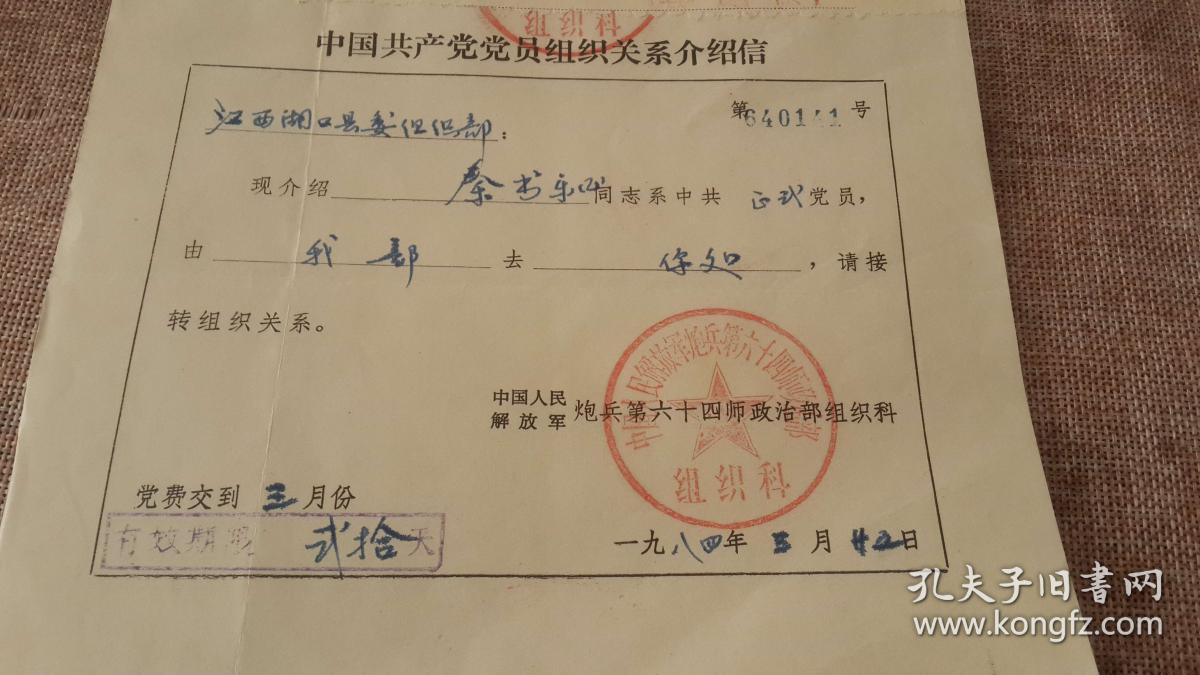 组织科
中国共产党党员组织关系介绍信
第640141号
江西湖口县委组织部：
现介绍 秦书乐 同志系中共 正式党员，
由 我部 去 你处 ，请接
转组织关系。
中国人民解放军炮兵第六十四师政治部
中国人民
解放军 炮兵第六十四师政治部组织科
组织科
党费交到 三月份
有效期限 弍拾天
一九八四年 三月 廿二日
孔夫子旧书网
www.kongfz.com